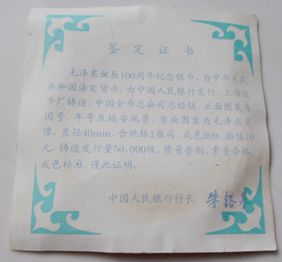 鉴定证书
毛泽东诞辰100周年纪念银币,为中华人民
共和国法定货币,由中国人民银行发行,上海造
币厂铸造,中国金币总公司总经销。正面图案为
国号、年号及延安风景,背面图案为毛泽东肖
像,直径40mm,含纯银1盎司,成色999,面值10
元,铸造发行量50.000枚,质量普制,重量合格,
成色标准,谨此证明。
中国人民银行行长 朱镕基